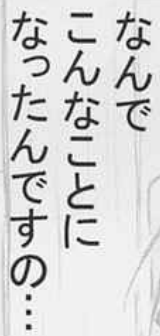 なんで
こんなことに
なったんですの…